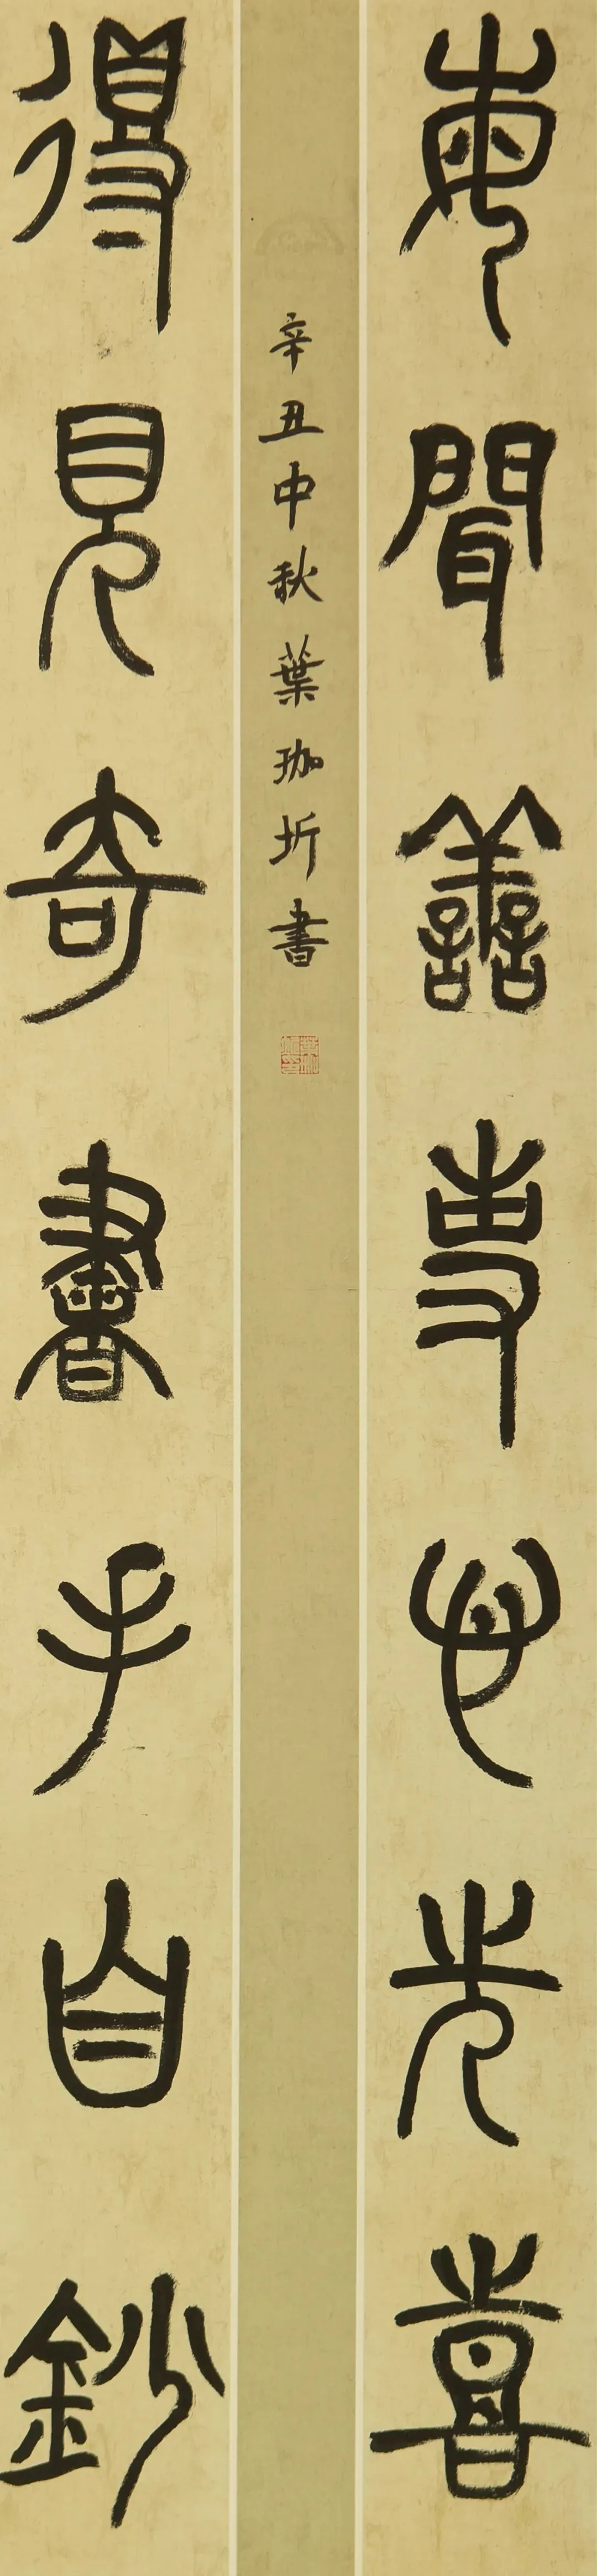 每聞善事心先喜
得見奇書手自鈔
辛丑中秋葉珈圻書